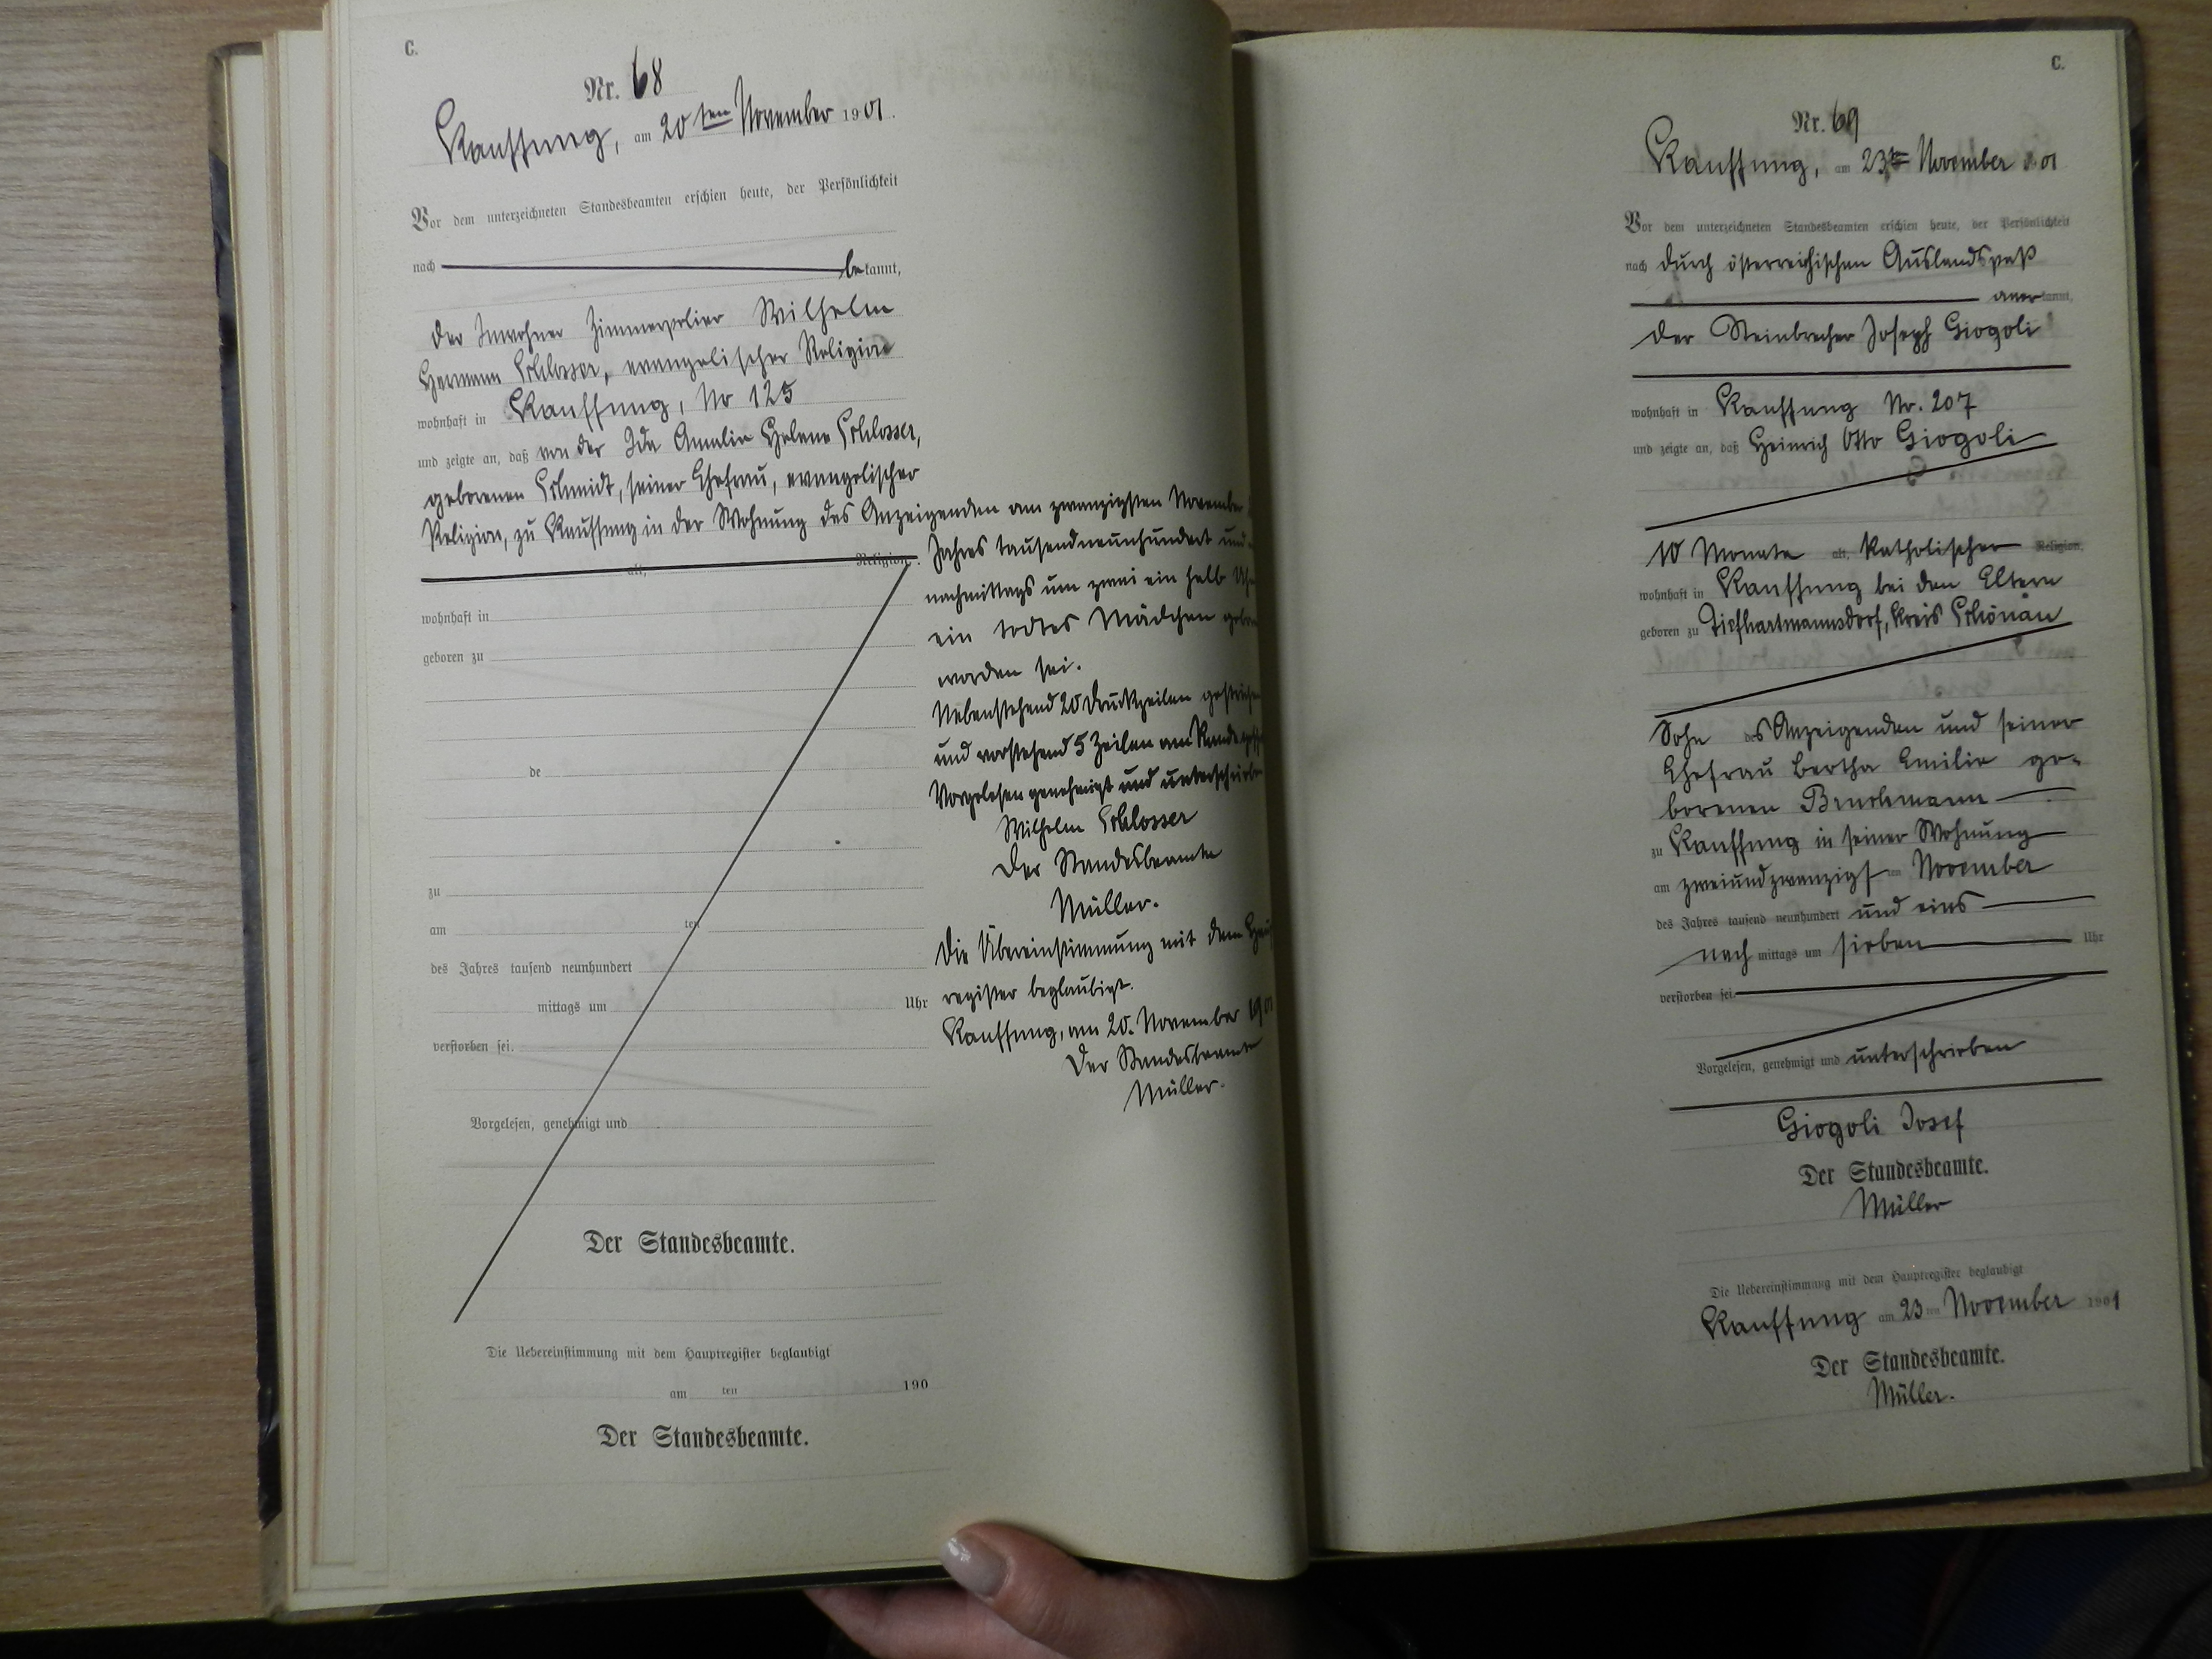 C.
Nr. 68
Kauffung, am 20ten November 1901.
Vor dem unterzeichneten Standesbeamten erschien heute, der Persönlichkeit
nach bekannt,
der Inwohner Zimmerpolier Wilhelm
Hermann Schlosser, evangelischer Religion
wohnhaft in Kauffung, No 125
und zeigte an, daß von der Ida Amalie Helene Schlosser,
geborenen Schmidt, seiner Ehefrau, evangelischer
Religion, zu Kauffung in der Wohnung des Anzeigenden am zwanzigsten November
alt, Religion,
Jahres tausendneunhundert und
nachmittags um zwei ein halb Uhr
ein todtes Mädchen
worden sei.
Nebenstehend 20 Druckzeilen gestrichen
und vorstehend 5 Zeilen am Rande
Vorgelesen genehmigt und unterschrieben
Wilhelm Schlosser
Der Standesbeamte
Müller.
Die Übereinstimmung mit dem
register beglaubigt.
Kauffung, am 20. November 1901
Der Standesbeamte
Müller.
wohnhaft in
geboren zu
de
zu
am ten
des Jahres tausend neunhundert
mittags um Uhr
verstorben sei.
Vorgelesen, genehmigt und
Der Standesbeamte.
Die Uebereinstimmung mit dem Hauptregister beglaubigt
am ten 190
Der Standesbeamte.
C.
Nr. 69
Kauffung, am 23ten November 1901
Vor dem unterzeichneten Standesbeamten erschien heute, der Persönlichkeit
nach durch österreichischen Auslandspaß
anerkannt,
der Steinbrecher Joseph Giogoli
wohnhaft in Kauffung Nr. 207
und zeigte an, daß Heinrich Otto Giogoli
10 Monate alt, katholischer Religion,
wohnhaft in Kauffung bei den Eltern
geboren zu Tiefhartmannsdorf, Kreis Schönau
Sohn des Anzeigenden und seiner
Ehefrau Bertha Emilie ge-
borenen Bruchmann
zu Kauffung in seiner Wohnung
am zweiundzwanzigsten November
des Jahres tausend neunhundert und eins
nach mittags um sieben Uhr
verstorben sei.
Vorgelesen, genehmigt und unterschrieben
Giogoli Josef
Der Standesbeamte.
Müller
Die Uebereinstimmung mit dem Hauptregister beglaubigt
Kauffung am 23ten November 1901
Der Standesbeamte.
Müller.